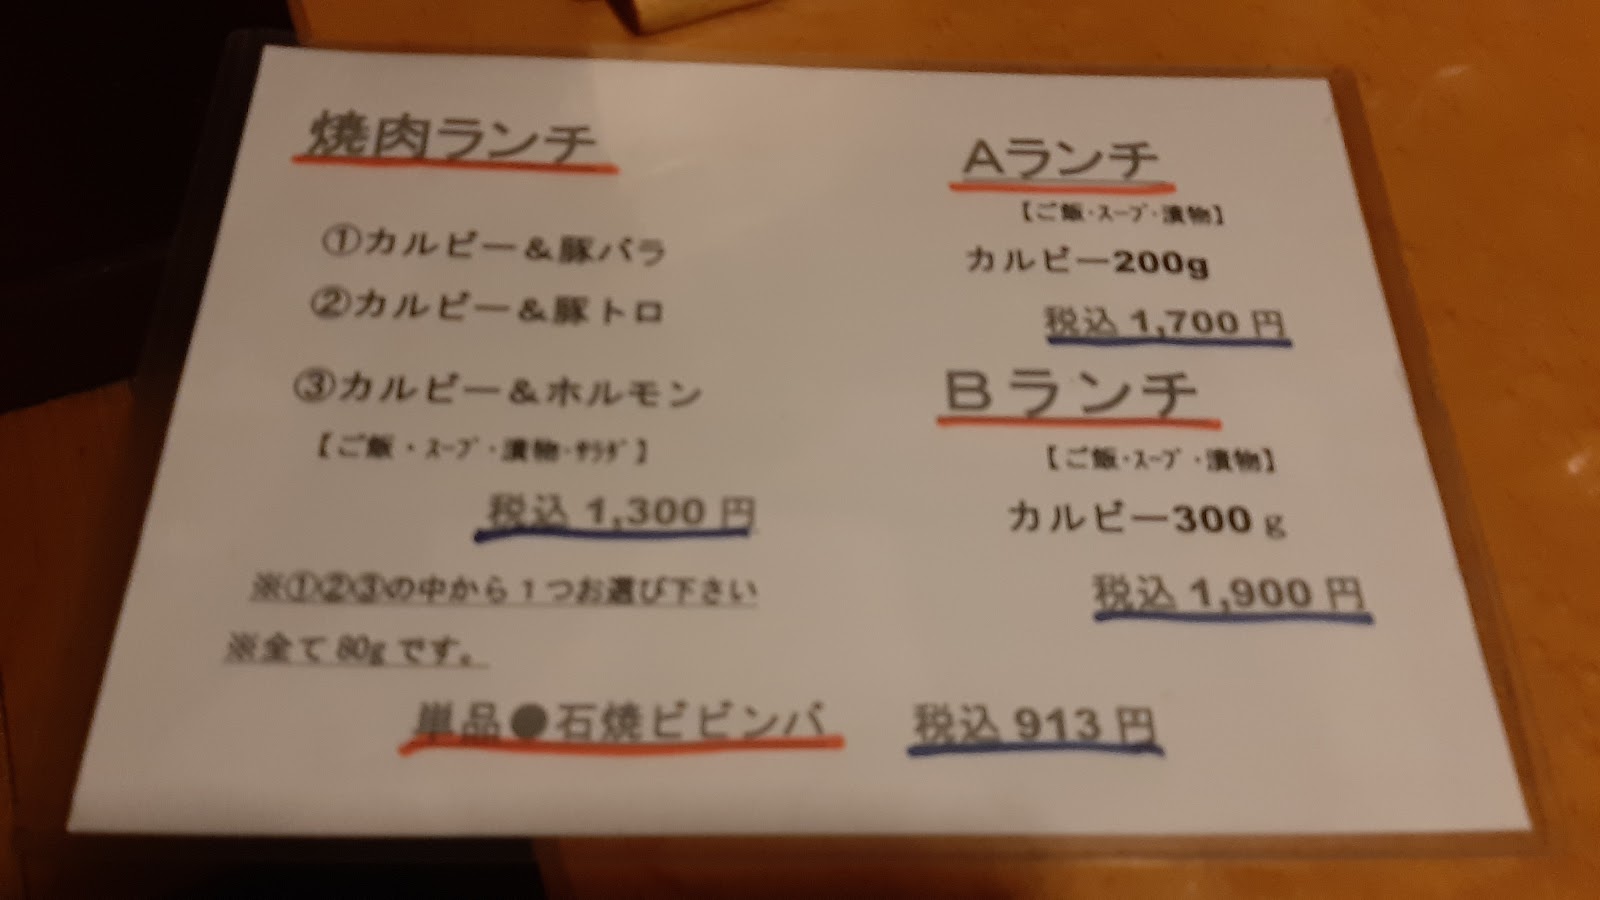 焼肉ランチ
①カルビー&豚バラ
②カルビー&豚トロ
③カルビー&ホルモン
【ご飯・ｽｰﾌﾟ・漬物・ｻﾗﾀﾞ】
税込 1,300 円
※①②③の中から１つお選び下さい
※全て 80g です。
Aランチ
【ご飯・ｽｰﾌﾟ・漬物】
カルビー200g
税込 1,700 円
Bランチ
【ご飯・ｽｰﾌﾟ・漬物】
カルビー300ｇ
税込 1,900 円
単品●石焼ビビンバ 税込 913 円